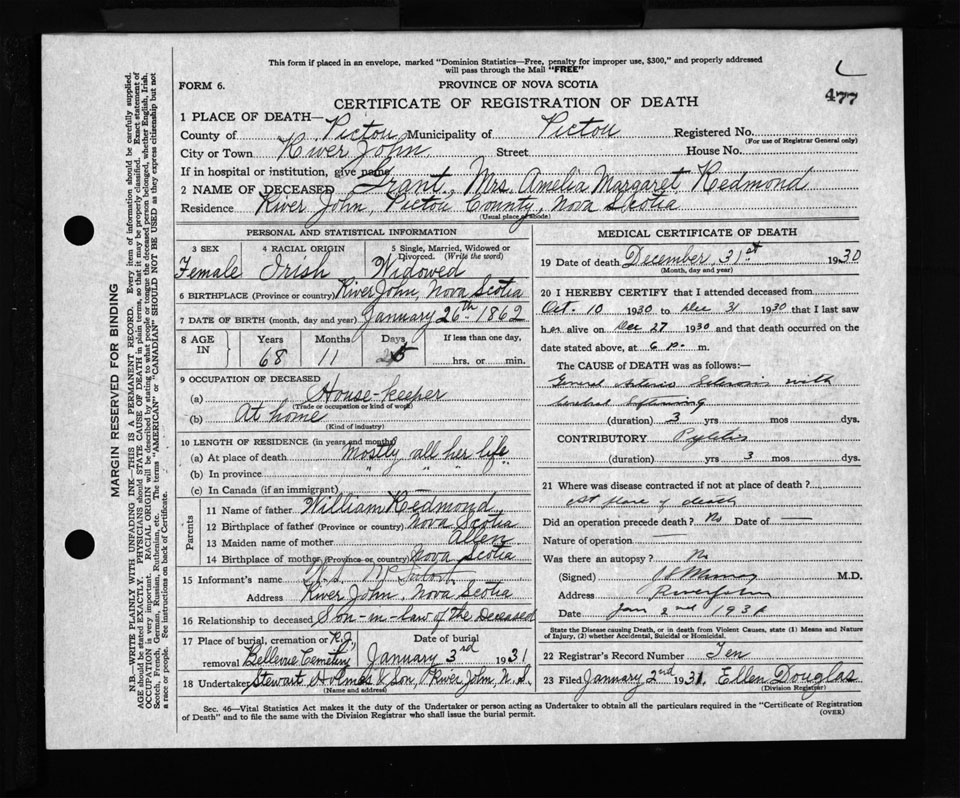 This form if placed in an envelope, marked "Dominion Statistics—Free, penalty for improper use, $300," and properly addressed
will pass through the Mail "FREE"
FORM 6.
PROVINCE OF NOVA SCOTIA
477
CERTIFICATE OF REGISTRATION OF DEATH
1 PLACE OF DEATH—
County of Pictou Municipality of Pictou Registered No.
(For use of Registrar General only)
City or Town River John, Street House No.
If in hospital or institution, give name
2 NAME OF DECEASED Grant, Mrs. Amelia Margaret Redmond
Residence River John, Pictou County, Nova Scotia
(Usual place of abode)
PERSONAL AND STATISTICAL INFORMATION
3 SEX 4 RACIAL ORIGIN 5 Single, Married, Widowed or
Divorced. (Write the word)
Female Irish Widowed
6 BIRTHPLACE (Province or country) River John, Nova Scotia
7 DATE OF BIRTH (month, day and year) January 26th 1862
8 AGE IN Years Months Days If less than one day,
68 11 5 hrs. or min.
9 OCCUPATION OF DECEASED
(a) House-keeper
(Trade or occupation or kind of work)
(b) At home
(Kind of industry)
10 LENGTH OF RESIDENCE (in years and months)
(a) At place of death Mostly all her life
(b) In province " " " "
(c) In Canada (if an immigrant) —
Parents
11 Name of father William Redmond
12 Birthplace of father (Province or country) Nova Scotia
13 Maiden name of mother Allen
14 Birthplace of mother (Province or country) Nova Scotia
15 Informant's name
Address River John, Nova Scotia
16 Relationship to deceased Son-in-law of the Deceased
17 Place of burial, cremation or R.J., Date of burial
removal Bellevue Cemetery January 3rd 1931
18 Undertaker Stewart Holmes & Son, River John, N.S.
(Name and address)
MEDICAL CERTIFICATE OF DEATH
19 Date of death December 31st 1930
(Month, day and year)
20 I HEREBY CERTIFY that I attended deceased from
Oct. 10 1930 to Dec 31 1930 that I last saw
her alive on Dec 27 1930 and that death occurred on
date stated above, at 6 p. m.
The CAUSE OF DEATH was as follows:—
General Arterio Sclerosis with
cerebral softening
(duration) 3 yrs mos dys.
CONTRIBUTORY
(duration) yrs 3 mos dys.
21 Where was disease contracted if not at place of death?
at place of death
Did an operation precede death? No Date of —
Nature of operation —
Was there an autopsy? No
(Signed) M.D.
Address River John
Date Jan 2nd 1931
State the Disease causing Death, or in death from Violent Causes, state (1) Means and Nature
of Injury, (2) whether Accidental, Suicidal or Homicidal.
22 Registrar's Record Number Ten
23 Filed January 2nd 1931. Ellen Douglas
(Division Registrar)
Sec. 46—Vital Statistics Act makes it the duty of the Undertaker or person acting as Undertaker to obtain all the particulars required in the "Certificate of Registration
of Death" and to file the same with the Division Registrar who shall issue the burial permit. (OVER)
MARGIN RESERVED FOR BINDING
N.B.—WRITE PLAINLY WITH UNFADING INK—THIS IS A PERMANENT RECORD. Every item of information should be carefully supplied.
AGE should be stated EXACTLY. PHYSICIANS should STATE CAUSE OF DEATH in plain terms, so that it may be properly classified. Exact statement of
OCCUPATION is very important. RACIAL ORIGIN will be described by stating to what people or tongue the deceased person belonged, whether English, Irish,
Scotch, French, German, Russian, Ruthenian, etc. The terms "AMERICAN" or "CANADIAN" SHOULD NOT BE USED as they express citizenship but not
a race or people. See instructions on back of Certificate.